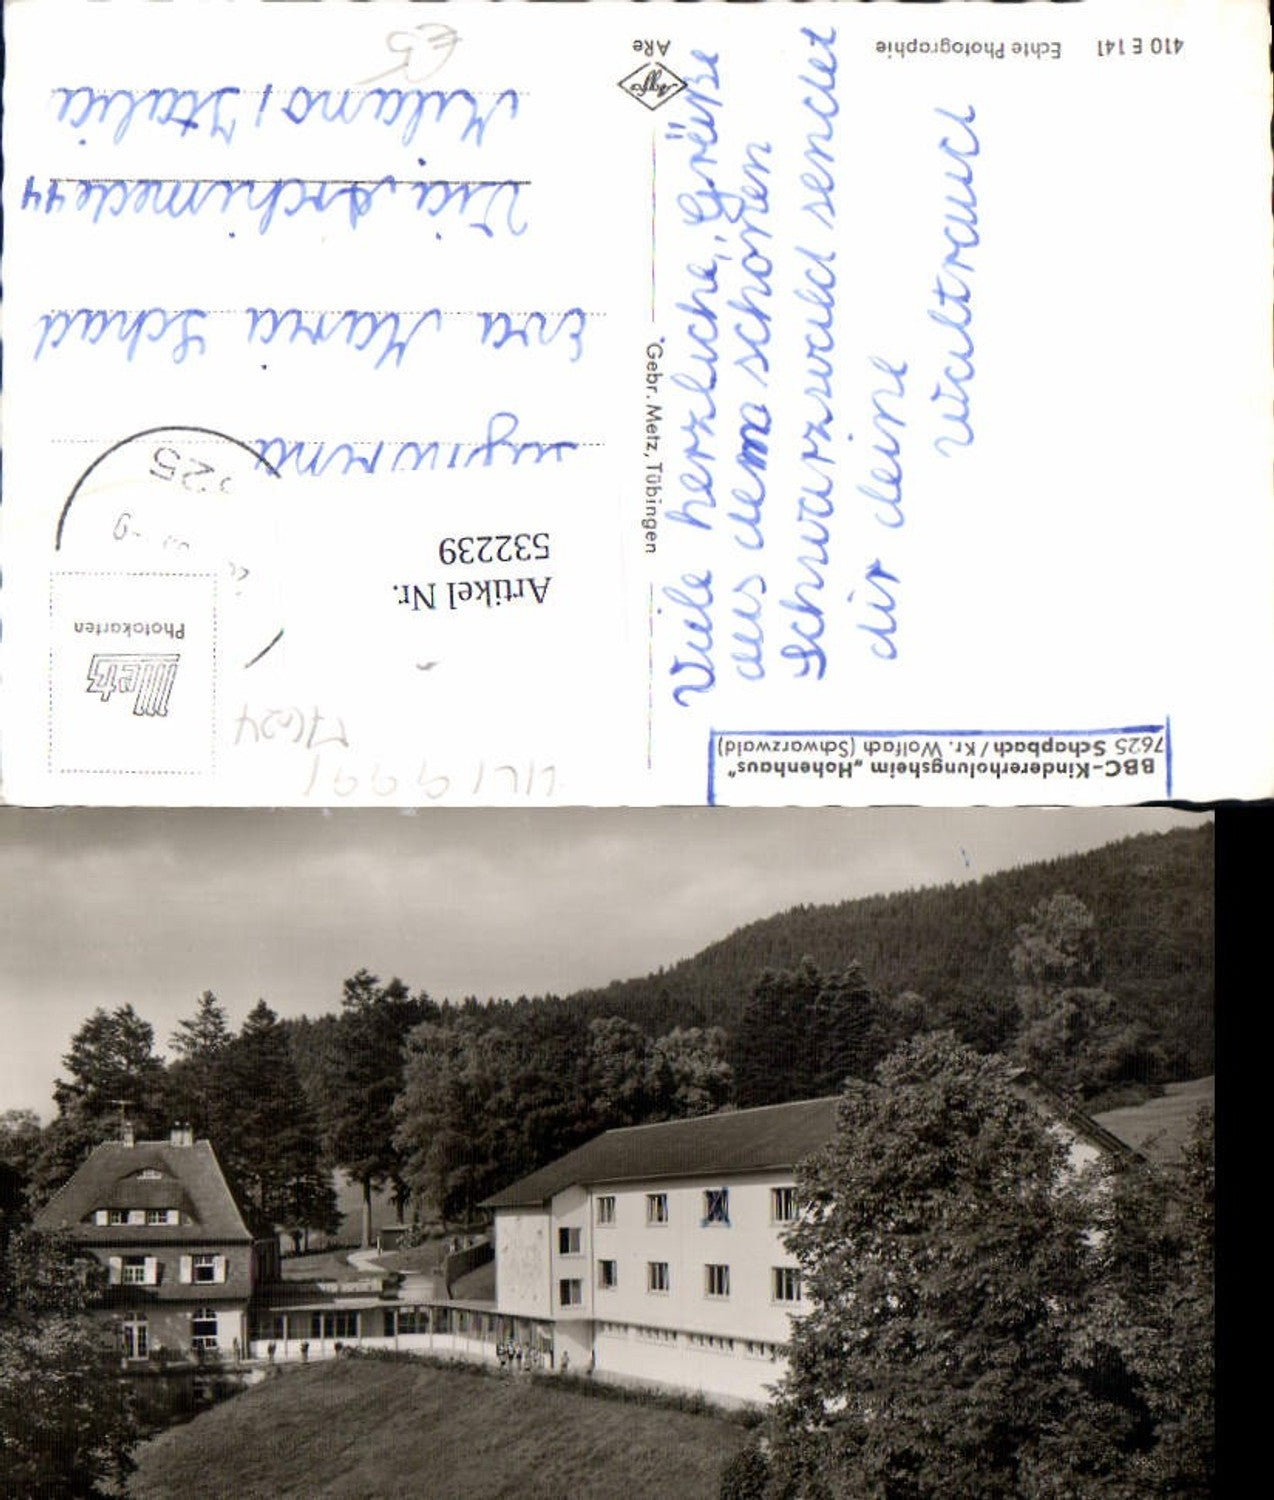 BBC-Kindererholungsheim „Hohenhaus"
7625 Schapbach/Kr. Wolfach (Schwarzwald)
Viele herzliche Grüße
aus dem schönen
Schwarzwald sendet
dir deine
Waltraud
410 E 141 Echte Photographie
Agfa
ARe
Gebr. Metz, Tübingen
Metz
Photokarten
Artikel Nr.
532239
Eva Maria Schad
Via Archimede 44
Milano, Italia
€5